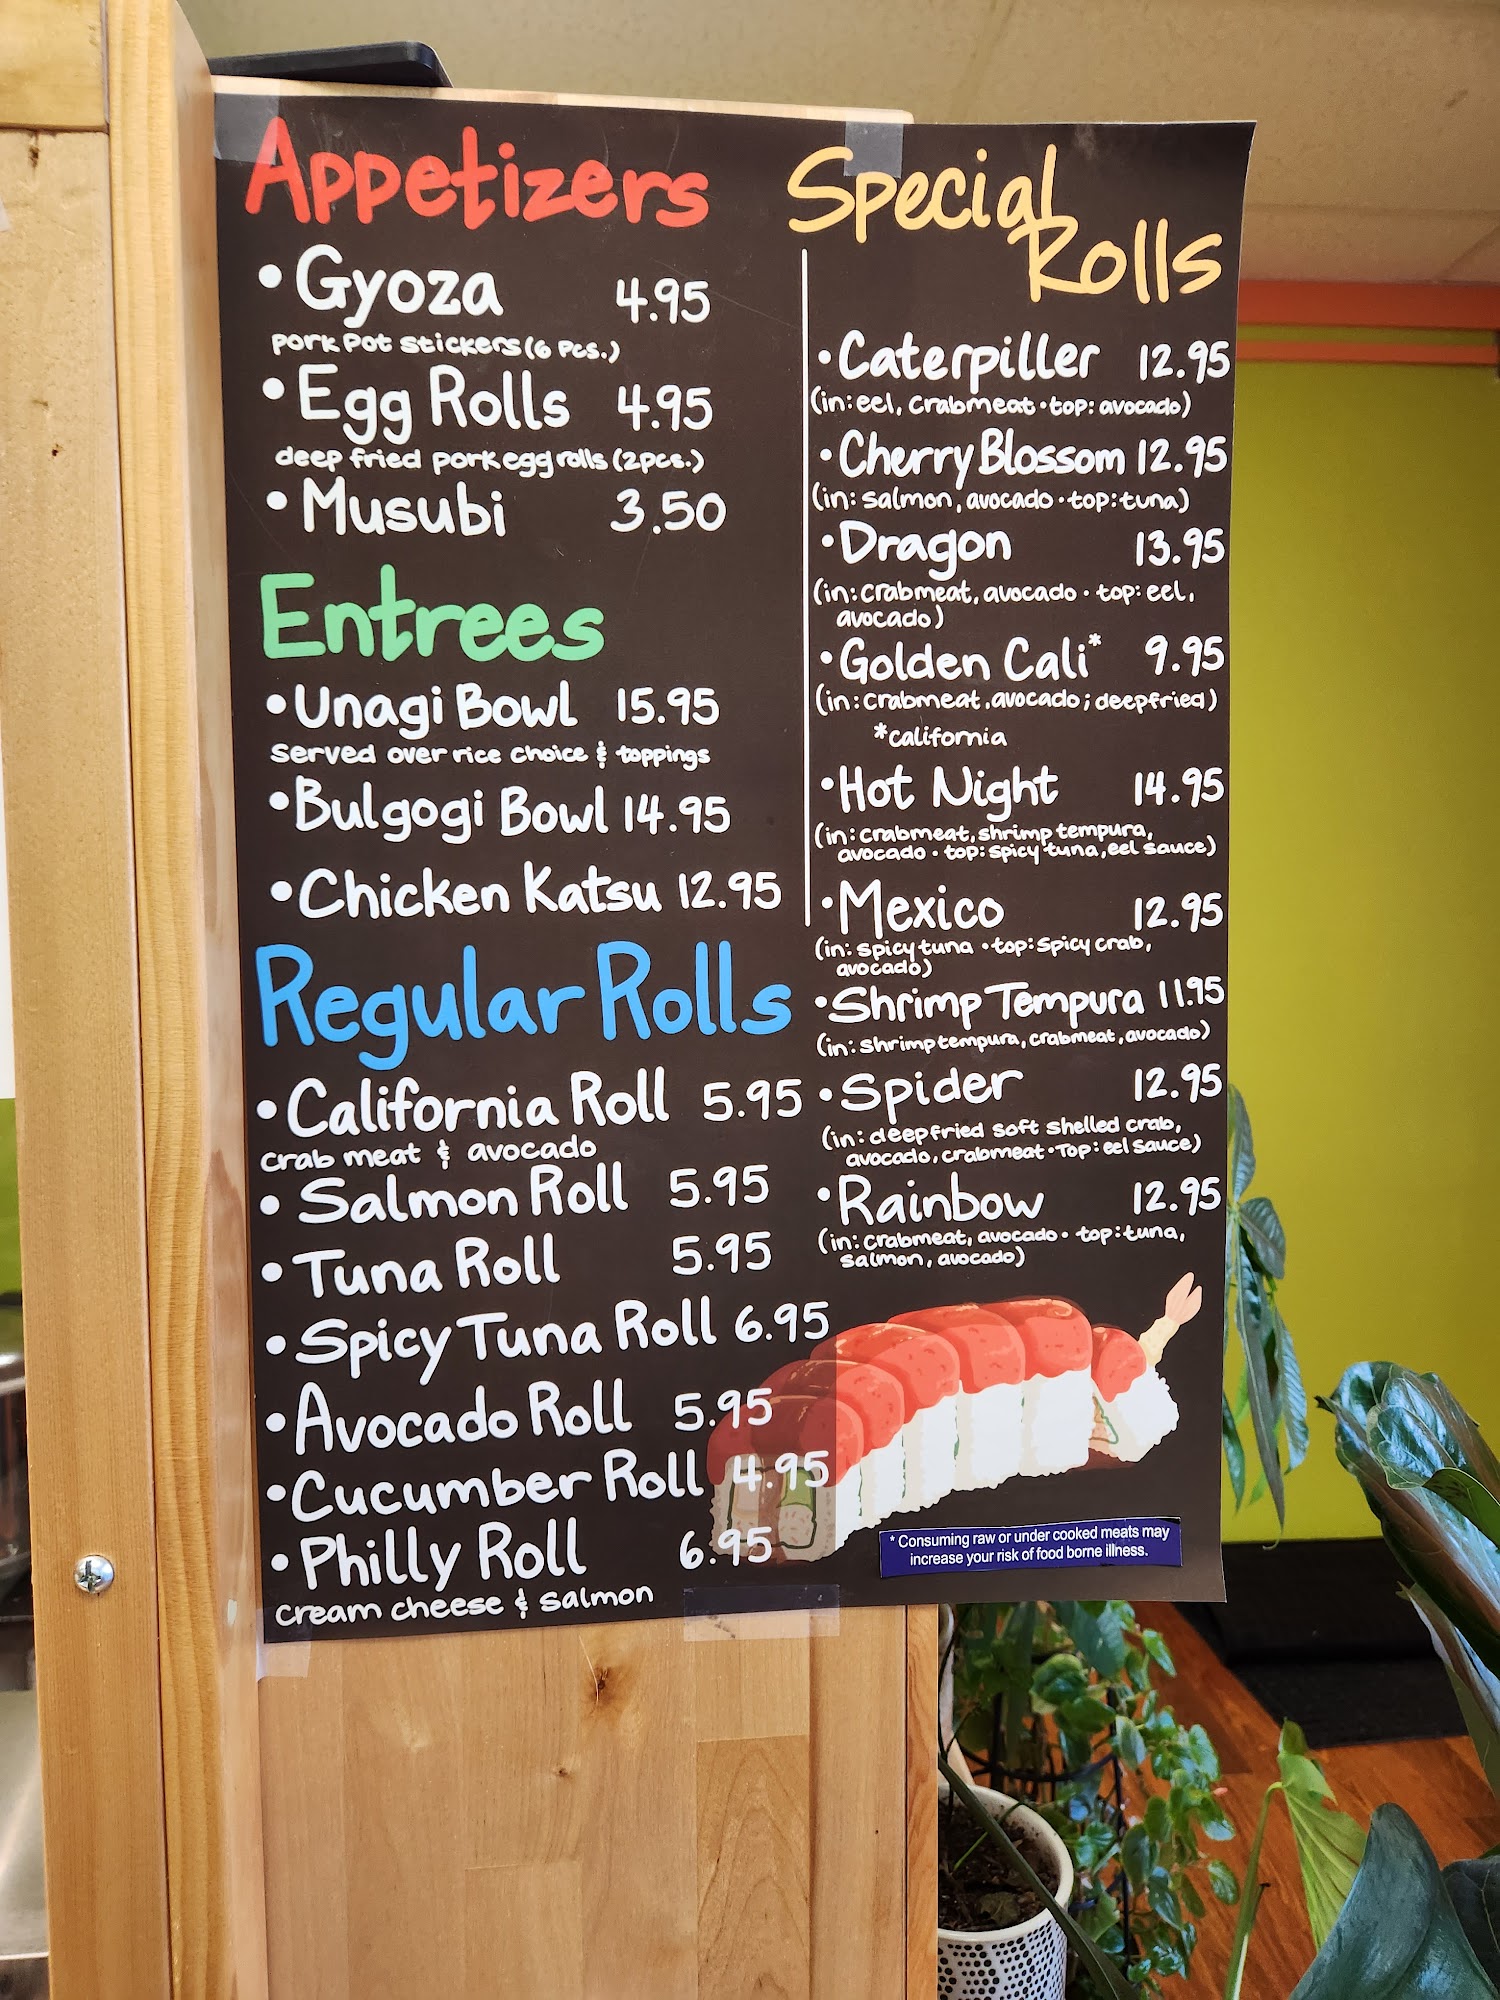 Appetizers
• Gyoza 4.95
pork pot stickers (6 pcs.)
• Egg Rolls 4.95
deep fried pork egg rolls (2pcs.)
• Musubi 3.50
Entrees
• Unagi Bowl 15.95
served over rice choice & toppings
• Bulgogi Bowl 14.95
• Chicken Katsu 12.95
Regular Rolls
• California Roll 5.95
crab meat & avocado
• Salmon Roll 5.95
• Tuna Roll 5.95
• Spicy Tuna Roll 6.95
• Avocado Roll 5.95
• Cucumber Roll 4.95
• Philly Roll 6.95
cream cheese & salmon
Special
Rolls
• Caterpiller 12.95
(in: eel, crabmeat • top: avocado)
• Cherry Blossom 12.95
(in: salmon, avocado • top: tuna)
• Dragon 13.95
(in: crabmeat, avocado • top: eel,
avocado)
• Golden Cali* 9.95
(in: crabmeat, avocado; deepfried)
*california
• Hot Night 14.95
(in: crabmeat, shrimp tempura,
avocado • top: spicy tuna, eel sauce)
• Mexico 12.95
(in: spicy tuna • top: spicy crab,
avocado)
• Shrimp Tempura 11.95
(in: shrimp tempura, crabmeat, avocado)
• Spider 12.95
(in: deepfried soft shelled crab,
avocado, crabmeat • Top: eel sauce)
• Rainbow 12.95
(in: crabmeat, avocado • top: tuna,
salmon, avocado)
* Consuming raw or under cooked meats may
increase your risk of food borne illness.